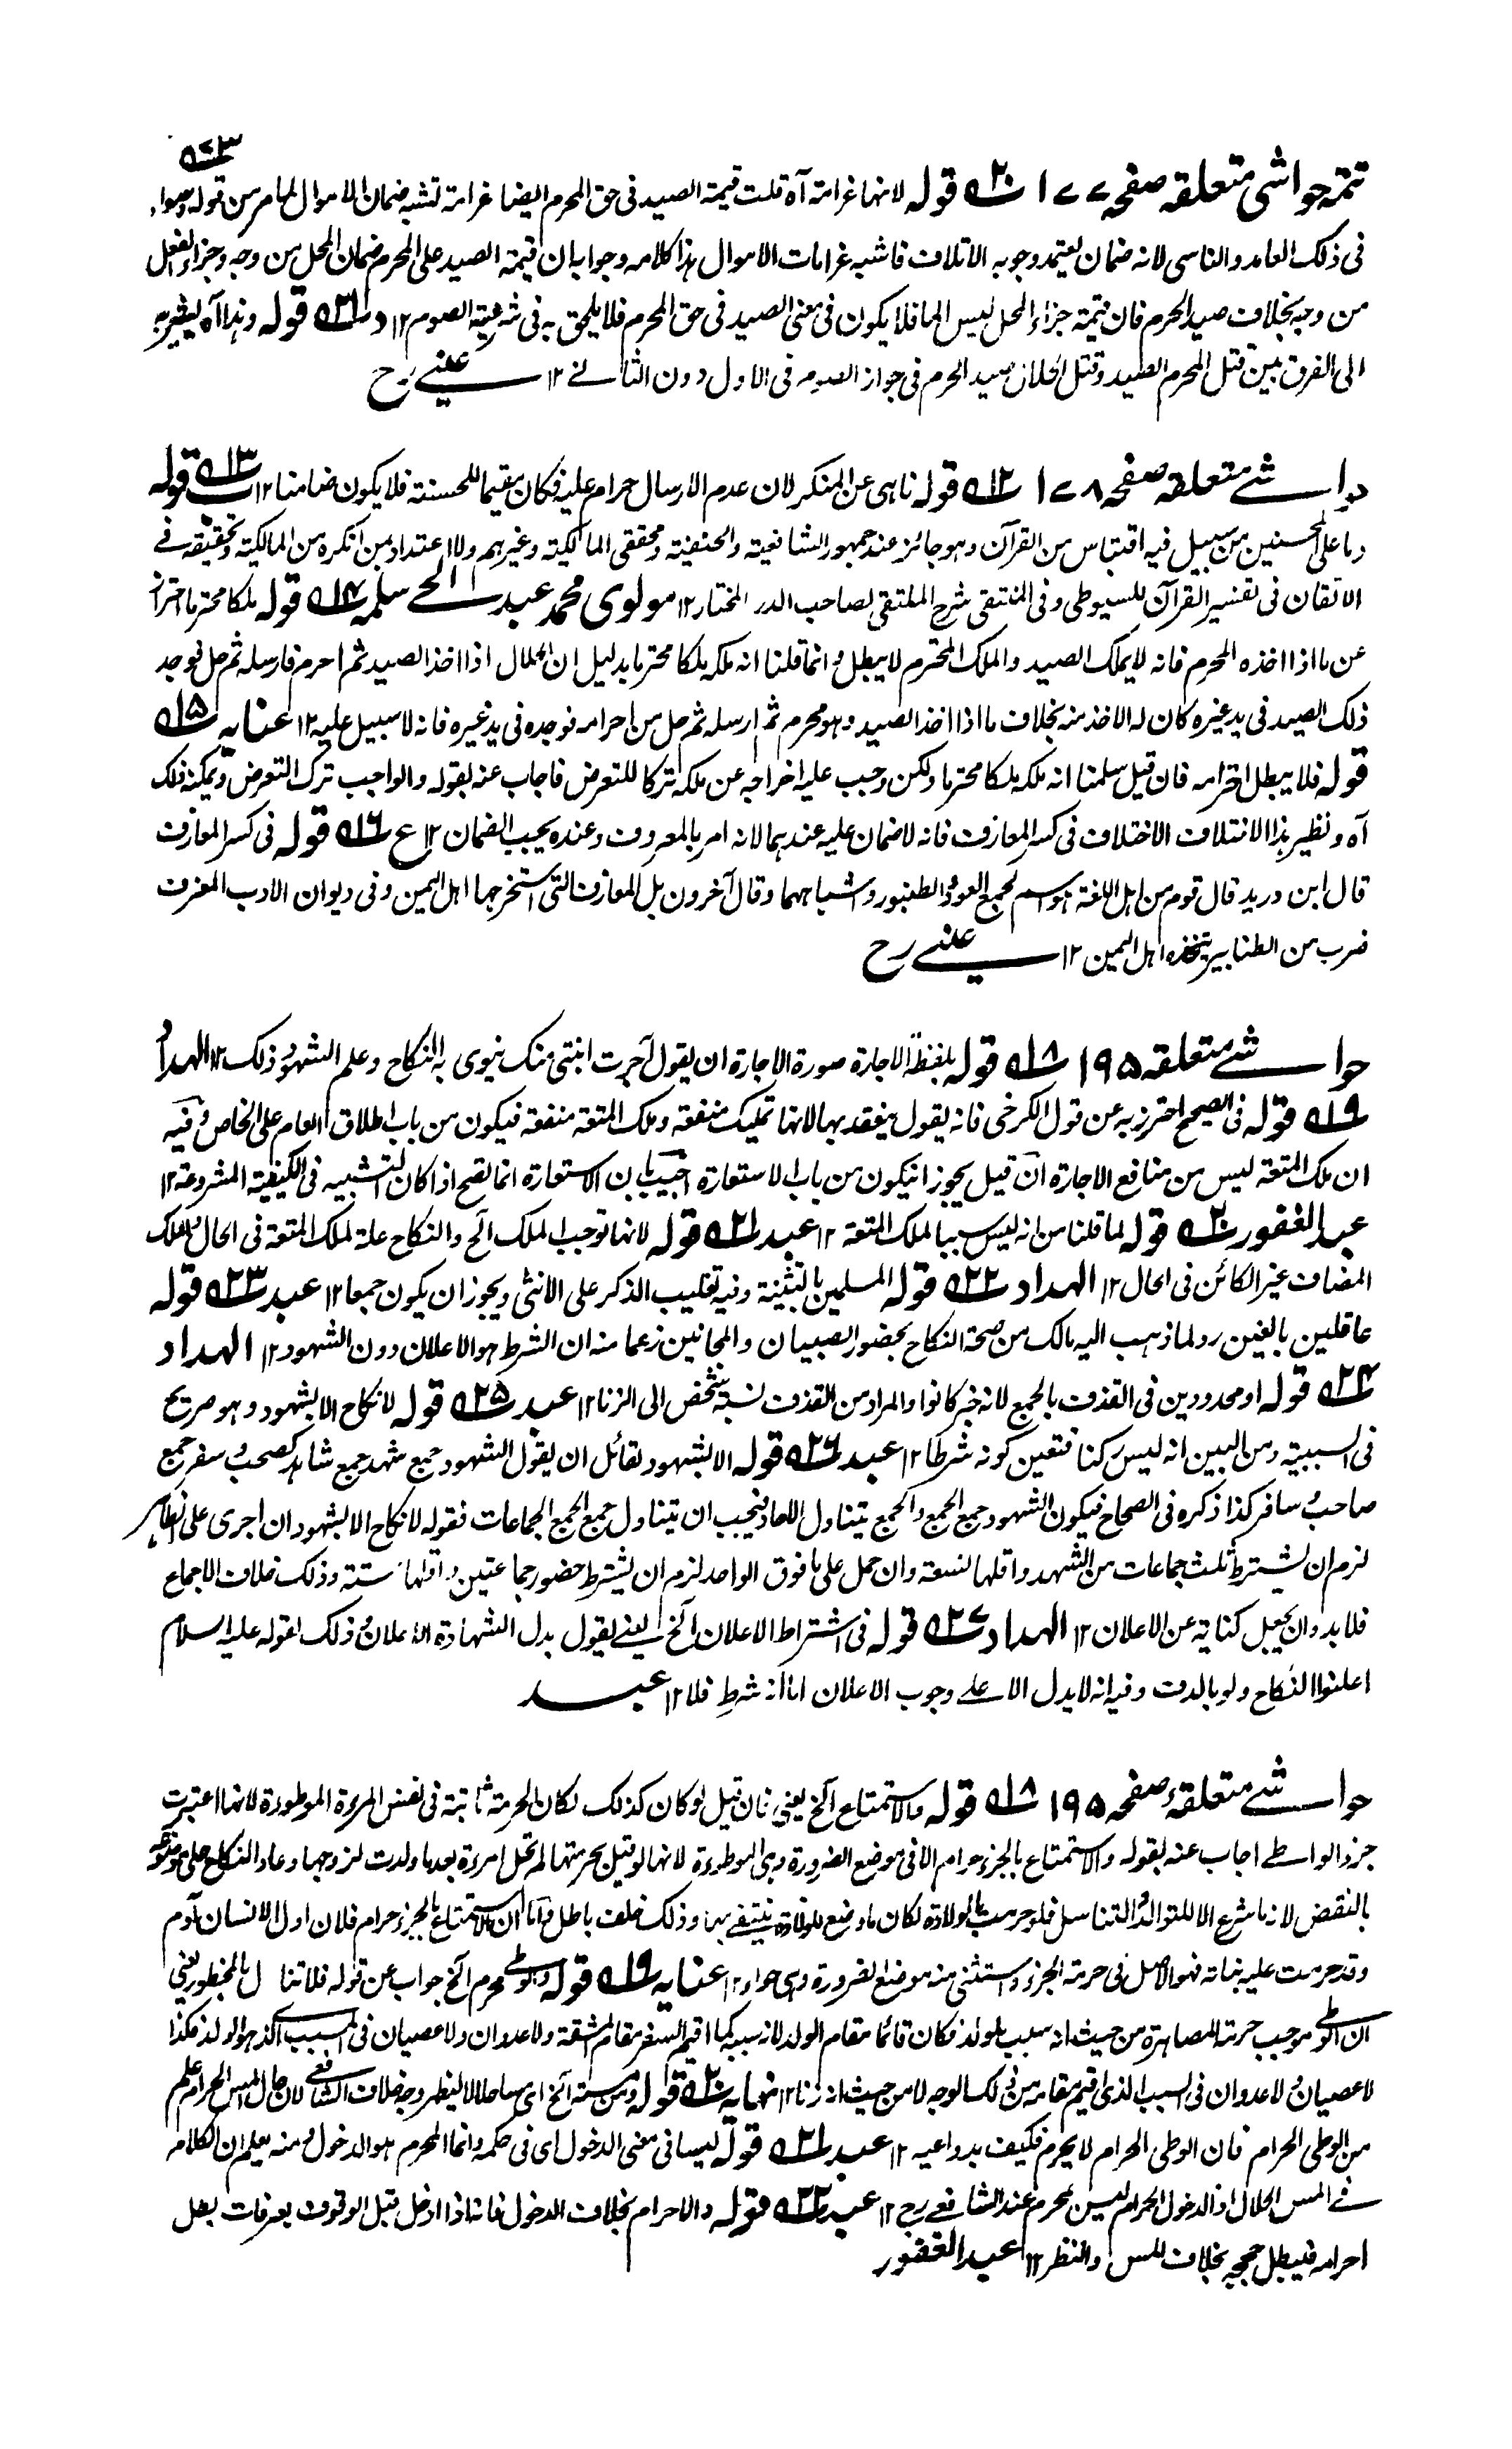 تتمہ حواشی متعلقہ صفحہ ۱۷۷ ۲۰ قوله لانها غرامة آه قلت قیمة الصید فی حق المحرم ایضا غرامة تشبه ضمان الاموال لما مر من قوله وسواء
فی ذلک العامد والناسی لانه ضمان یعتمد وجوبه الاتلاف فاشبه غرامات الاموال هذا کلامه وجوابه ان قیمة الصید علی المحرم ضمان المحل من وجه وجزاء الفعل
من وجه بخلاف صید الحرم فان قیمته جزاء المحل لیس الا فلا یکون فی معنی الصید فی حق المحرم فلا یلحق به فی شرعیة الصوم ۱۲ د ۲۱ قوله وهذا آه یشیر به
الی الفرق بین قتل المحرم الصید وقتل الحلال صید الحرم فی جواز الصوم فی الاول دون الثانی ۱۲ عینی رح
حواشی متعلقہ صفحہ ۱۷۸ ۱۲ قوله ناهی عن المنکر لان عدم الارسال حرام علیه فکان مقیما للحسنة فلا یکون ضامنا ۱۲ ب ۱۳ قوله
وما علی المحسنین من سبیل فیه اقتباس من القرآن وهو جائز عند جمهور الشافعیة والحنفیة ومحققی المالکیة وغیرهم ولا اعتداد بمن انکره من المالکیة وتحقیقه فی
الاتقان فی تفسیر القرآن للسیوطی وفی المنتقی شرح الملتقی لصاحب الدر المختار ۱۲ مولوی محمد عبد الحی سلمه ۱۴ قوله ملکا محترما احتراز
عن ما اذا اخذه المحرم فانه لا یملک الصید والملک المحترم لا یبطل وانما قلنا انه ملکه ملکا محترما بدلیل ان الحلال اذا اخذ الصید ثم احرم فارسله ثم حل فوجد
ذلک الصید فی ید غیره کان له الاخذ منه بخلاف ما اذا اخذ الصید وهو محرم ثم ارسله ثم حل من احرامه فوجده فی ید غیره فانه لا سبیل علیه ۱۲ عنایه ۱۵
قوله فلا یبطل احترامه فان قیل سلمنا انه ملکه ملکا محترما ولکن وجب علیه اخراجه عن ملکه ترکا للتعرض فاجاب عنه بقوله والواجب ترک التعرض ویمکنه ذلک
آه ونظیر هذا الاختلاف الاختلاف فی کسر المعازف فانه لا ضمان علیه عندهما لانه امر بالمعروف وعنده یجب الضمان ۱۲ ع ۱۶ قوله فی کسر المعازف
قال ابن درید قال قوم من اهل اللغة هو اسم لجمیع العود والطنبور واشباههما وقال آخرون بل المعازف التی استخرجها اهل الیمن وفی دیوان الادب المعزف
ضرب من الطنابیر یتخذه اهل الیمن ۱۲ عینی رح
حواشی متعلقہ ۱۹۵ ۱۸ قوله بلفظة الاجارة صورة الاجارة ان یقول آجرت ابنتی منک ینوی به النکاح وعلم الشهود ذلک ۱۲ الهداد
۱۹ قوله فی الصحیح احترز به عن قول الکرخی فانه یقول ینعقد بها لانها تملیک منفعة وملک المتعة منفعة فیکون من باب اطلاق العام علی الخاص وفیه
ان ملک المتعة لیس من منافع الاجارة ان قیل یجوز ان یکون من باب الاستعارة اجیب بان الاستعارة انما تصح اذا کان التشبیه فی الکیفیة المشروعة ۱۲
عبد الغفور ۲۰ قوله لما قلنا من انه لیس سببا لملک المتعة ۱۲ عبد ۲۱ قوله لانها توجب الملک الخ والنکاح علة لملک المتعة فی الحال والملک
المضاف غیر الکائن فی الحال ۱۲ الهداد ۲۲ قوله المسلمین بالتثنیة وفیه تغلیب الذکر علی الانثی ویجوز ان یکون جمعا ۱۲ عبد ۲۳ قوله
عاقلین بالغین رد لما ذهب الیه مالک من صحة النکاح بحضور الصبیان والمجانین زعما منه ان الشرط هو الاعلان دون الشهود ۱۲ الهداد
۲۴ قوله او محدودین فی القذف بالجمع لانه خبر کانوا والمراد من القذف نسبة شخص الی الزنا ۱۲ عبد ۲۵ قوله لا نکاح الا بشهود وهو صریح
فی السببیة ومن البین انه لیس رکنا فتعین کونه شرطا ۱۲ عبد ۲۶ قوله الا بشهود لقائل ان یقول الشهود جمع شهد جمع شاهد کصحب وسفر جمع
صاحب وسافر کذا ذکره فی الصحاح فیکون الشهود جمع الجمع والجمع یتناول الآحاد فیجب ان یتناول جمع الجمع الجماعات فقوله لا نکاح الا بشهود ان اجری علی الظاهر
لزم ان یشترط ثلث جماعات من الشهود واقلها تسعة وان حمل علی ما فوق الواحد لزم ان یشترط حضور جماعتین واقلها ستة وذلک خلاف الاجماع
فلا بد وان یجعل کنایة عن الاعلان ۱۲ الهداد ۲۷ قوله فی اشتراط الاعلان الخ یعنی یقول بدل الشهادة الاعلان وذلک لقوله علیه السلام
اعلنوا النکاح ولو بالدف وفیه انه لا یدل الا علی وجوب الاعلان اما انه شرط فلا ۱۲ عبد
حواشی متعلقہ صفحہ ۱۹۵ ۱۸ قوله والاستمتاع الخ یعنی فان قیل لو کان کذلک لکان الحرمة ثابتة فی نفس المرءة الموطوءة لانها اعتبرت
جزء الواطی اجاب عنه بقوله والاستمتاع بالجزء حرام الا فی موضع الضرورة وهی الموطوءة لانها لو قیل بحرمتها لم تحل امرءة بعد ما ولدت لزوجها وعاد النکاح علی موضوعه
بالنقض لانه ما شرع الا للتوالد والتناسل فلو حرمت بالولادة لکان ما وضع للولادة ینتفی بها وذلک خلف باطل واما ان الاستمتاع بالجزء حرام فلان اول الانسان آدم
وقد حرمت علیه بناته فهو الاصل فی حرمة الجزء واستثنی منه موضع الضرورة وهی حواء ۱۲ عنایه ۱۹ قوله والوطی محرم الخ جواب عن قوله فلا تنال بالمحظور یعنی
ان الوطی موجب حرمة المصاهرة من حیث انه سبب للولد فکان قائما مقام الولد لانه سببه کما اقیم السفر مقام المشقة ولا عدوان ولا عصیان فی المسبب الذی هو الولد فکذا
لا عصیان ولا عدوان فی السبب الذی اقیم مقامه من ذلک الوجه لا من حیث انه زنا ۱۲ نهایه ۲۰ قوله ومن مسته الخ ای مسا حلالا لیظهر وجه خلاف الشافعی لان حال المس الحرام علم
من الوطی الحرام فان الوطی الحرام لا یحرم فکیف بدواعیه ۱۲ عبد ۲۱ قوله لیسا فی معنی الدخول ای فی حکمه وانما المحرم هو الدخول ومنه یعلم ان الکلام
فی المس الحلال اذ الدخول الحرام لیس بمحرم عند الشافعی رح ۱۲ عبد ۲۲ قوله والاحرام بخلاف الدخول فانه اذا دخل قبل الوقوف بعرفات بطل
احرامه فیبطل حجه بخلاف المس والنظر ۱۲ عبد الغفور